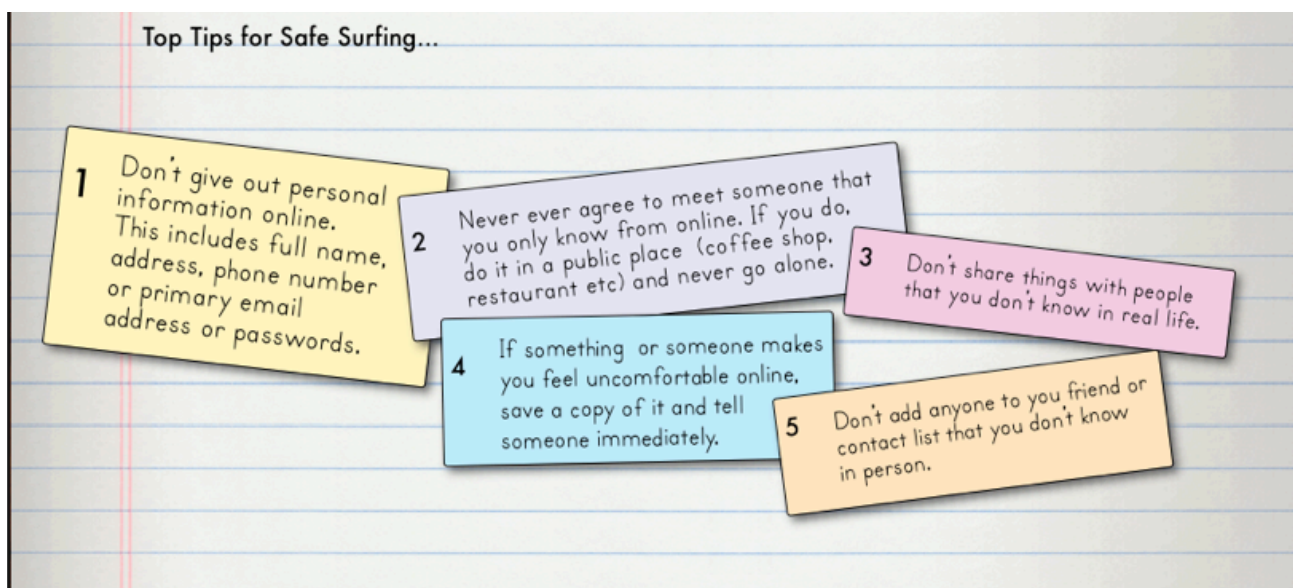 Top Tips for Safe Surfing...
1
Don't give out personal
information online.
This includes full name,
address, phone number
or primary email
address or passwords.
2
Never ever agree to meet someone that
you only know from online. If you do,
do it in a public place (coffee shop,
restaurant etc) and never go alone.
3
Don't share things with people
that you don't know in real life.
4
If something or someone makes
you feel uncomfortable online,
save a copy of it and tell
someone immediately.
5
Don't add anyone to you friend or
contact list that you don't know
in person.